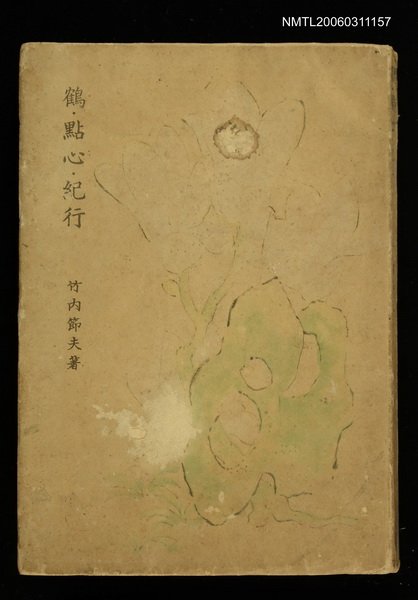 NMTL20060311157
鶴・點心・紀行
竹内節夫著